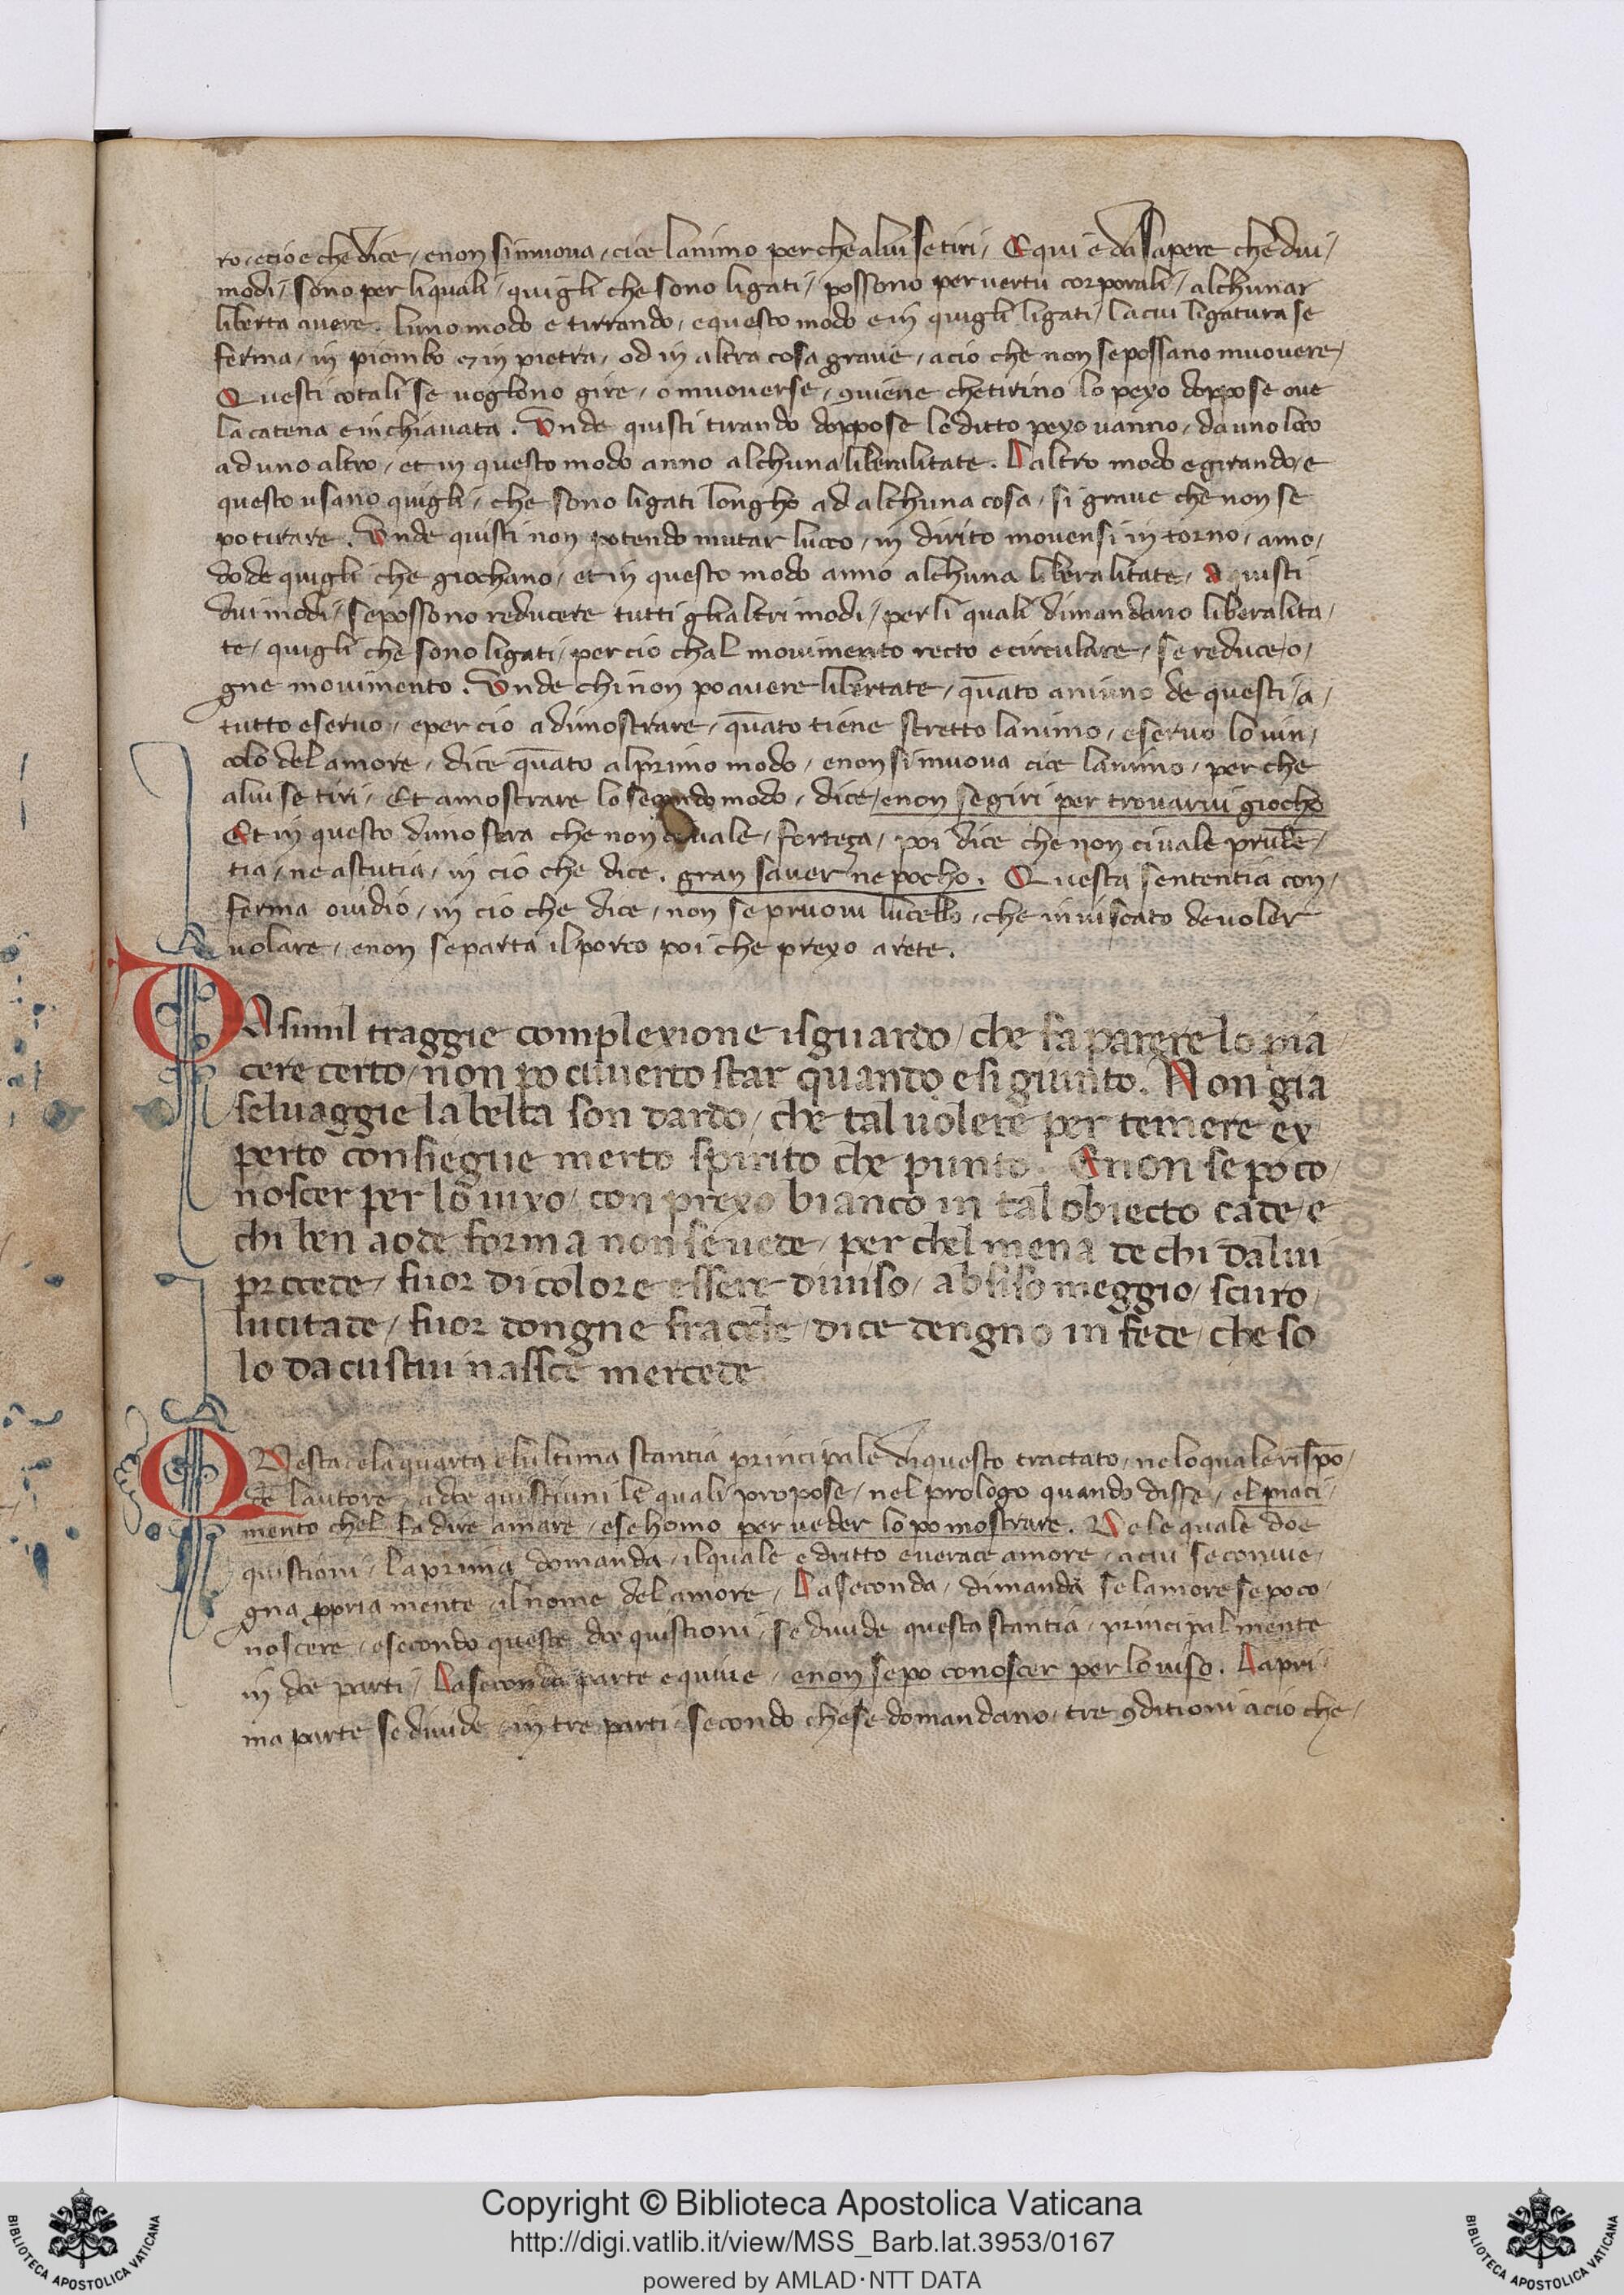 ro, ecio e che dice, enon si muova, cioe lanimo perche alui se tiri, E qui e da sapere che dui,
modi, sono per li quali, quigli che sono ligati, possono per vertu corporali, alchunar
liberta avere. Luno modo e tirrando, equesto modo e in quigli ligati, lacui ligatura se
ferma, in piombo o in pietra, od in altra cosa grave, acio che non se possano muovere,
Questi cotali se voglono gire, o muoverse, ꝯviene che tirino lo pexo doppo se ove
la catena e inchiavata. Unde quisti tirando doppo se lo ditto pexo vanno, da uno loco
ad uno altro, et in questo modo anno alchuna liberalitate. Laltro modo e girando, e
questo usano quigli, che sono ligati longho ad alchuna cosa, si grave che non se
po tirare. Unde quisti non potendo mutar luoco, in dirito movensi in torno, amo,
do de quigli che giochano, et in questo modo anno alchuna liberalitate, A quisti
dui modi, se possono reducere tutti gli altri modi, per li quali dimandano liberalita,
te, quigli che sono ligati, per cio chal movimento recto e circulare, se reduce, o,
gne movimento. Unde chi non po avere libertate, quāto animo de questi, a,
tutto e servo, e per cio a dimostrare, quāto tiene stretto lanimo, e servo lo vin,
colo del amore, dice quāto al primo modo, enon si muova cioe lanimo, per che
alui se tiri, Et amostrare lo segondo modo, dice, enon se giri per trovarivi giocho
Et in questo dimostra che non ci vale, forteça, poi dice che non ci vale prudē,
tia, ne astutia, in cio che dice. gran saver ne pocho. Questa sententia con,
ferma ovidio, in cio che dice, non se pruovi lucello, che inviscato de voler
volare, enon se parta il porco poi che prexo a rete.
DA simil traggie complexione isguardo, che fa parere lo pia
cere certo, non po coverto star quando e si giunto. Non gia
selvaggie la belta son dardo, che tal volere per temere ex
perto consiegue merto spirito che punto. E non se po co,
noscer per lo vixo, con prexo bianco in tal obiecto cade, e
chi ben aode forma non se vede, perchel mena de chi dalui
precede, fuor di colore essere diviso, absiso meggio, scuro,
lucitade, fuor dongne fraode, dice dengno in fede, che so
lo da custui nassce mercede
QUesta e la quarta e lultima stantia principale di questo tractato, nelo quale rispō,
de lautore, a doe quistiuni le quali propose, nel prologo quando disse, el piaci,
mento chel fa dire amare, ese homo per veder lo po mostrare. De le quale doe
quistioni, la prima domanda, il quale e dritto e verace amore, acui se convie,
gna ꝓpriamente, il nome del amore, La seconda, dimanda se lamore se po co,
noscere, e secondo queste doe quistioni, se divide questa stantia, principalmente
in doe parti, La seconda parte e quive, enon se po conoscer per lo viso. La pri,
ma parte se divide, in tre parti, secondo che se domandano, tre ꝯditioni acio che,
Copyright © Biblioteca Apostolica Vaticana
http://digi.vatlib.it/view/MSS_Barb.lat.3953/0167
powered by AMLAD·NTT DATA
BIBLIOTECA APOSTOLICA VATICANA
BIBLIOTECA APOSTOLICA VATICANA